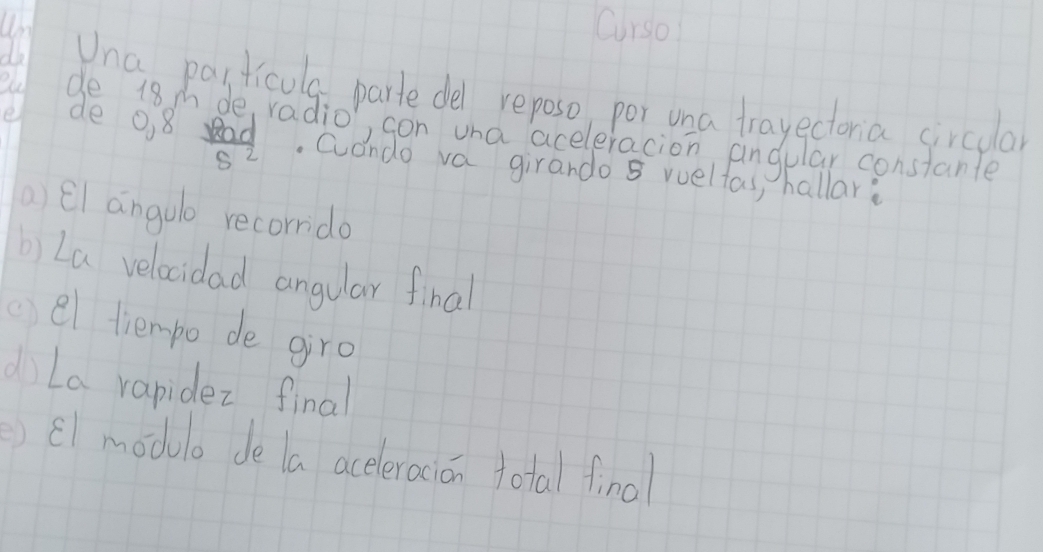 Curso:
Una partícula parte del reposo por una trayectoria circular
de 18 m de radio, con una aceleración angular constante
de 0,8 rad/s². Cuando va girando 5 vueltas, hallar:
a) El ángulo recorrido
b) La velocidad angular final
c) el tiempo de giro
d) La rapidez final
e) El módulo de la aceleración total final